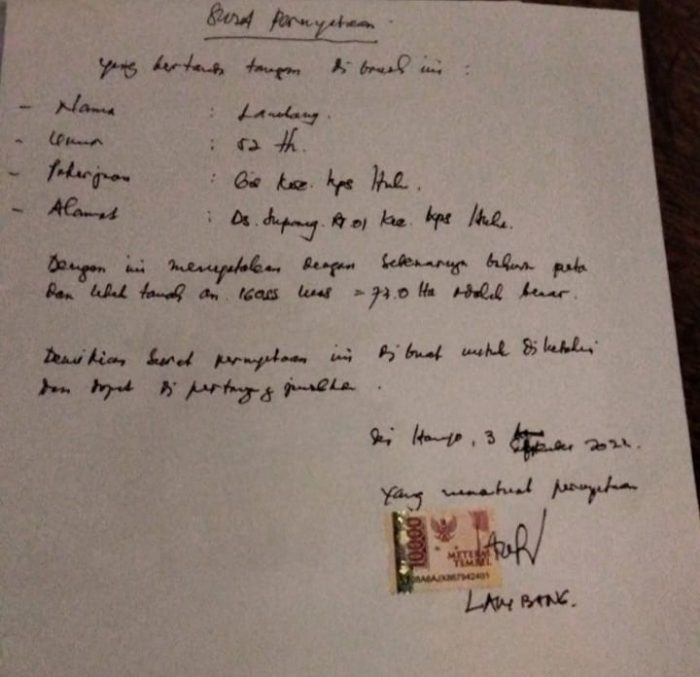 Surat Pernyataan
yang bertanda tangan di bawah ini :
- Nama : Lambang.
- Umur : 52 th.
- Pekerjaan : Kec. kps Hulu.
- Alamat : Ds. Rt 01 Kec. kps Hulu.
Dengan ini menyatakan dengan sebenarnya bahwa peta
dan lahan tanah an. luas = 77.0 Ha adalah benar.
Demikian Surat pernyataan ini di buat untuk di ketahui
dan dapat di pertanggung jawabkan.
3 2022.
yang membuat pernyataan
10000
METERAI
TEMPEL
LAMBANG.